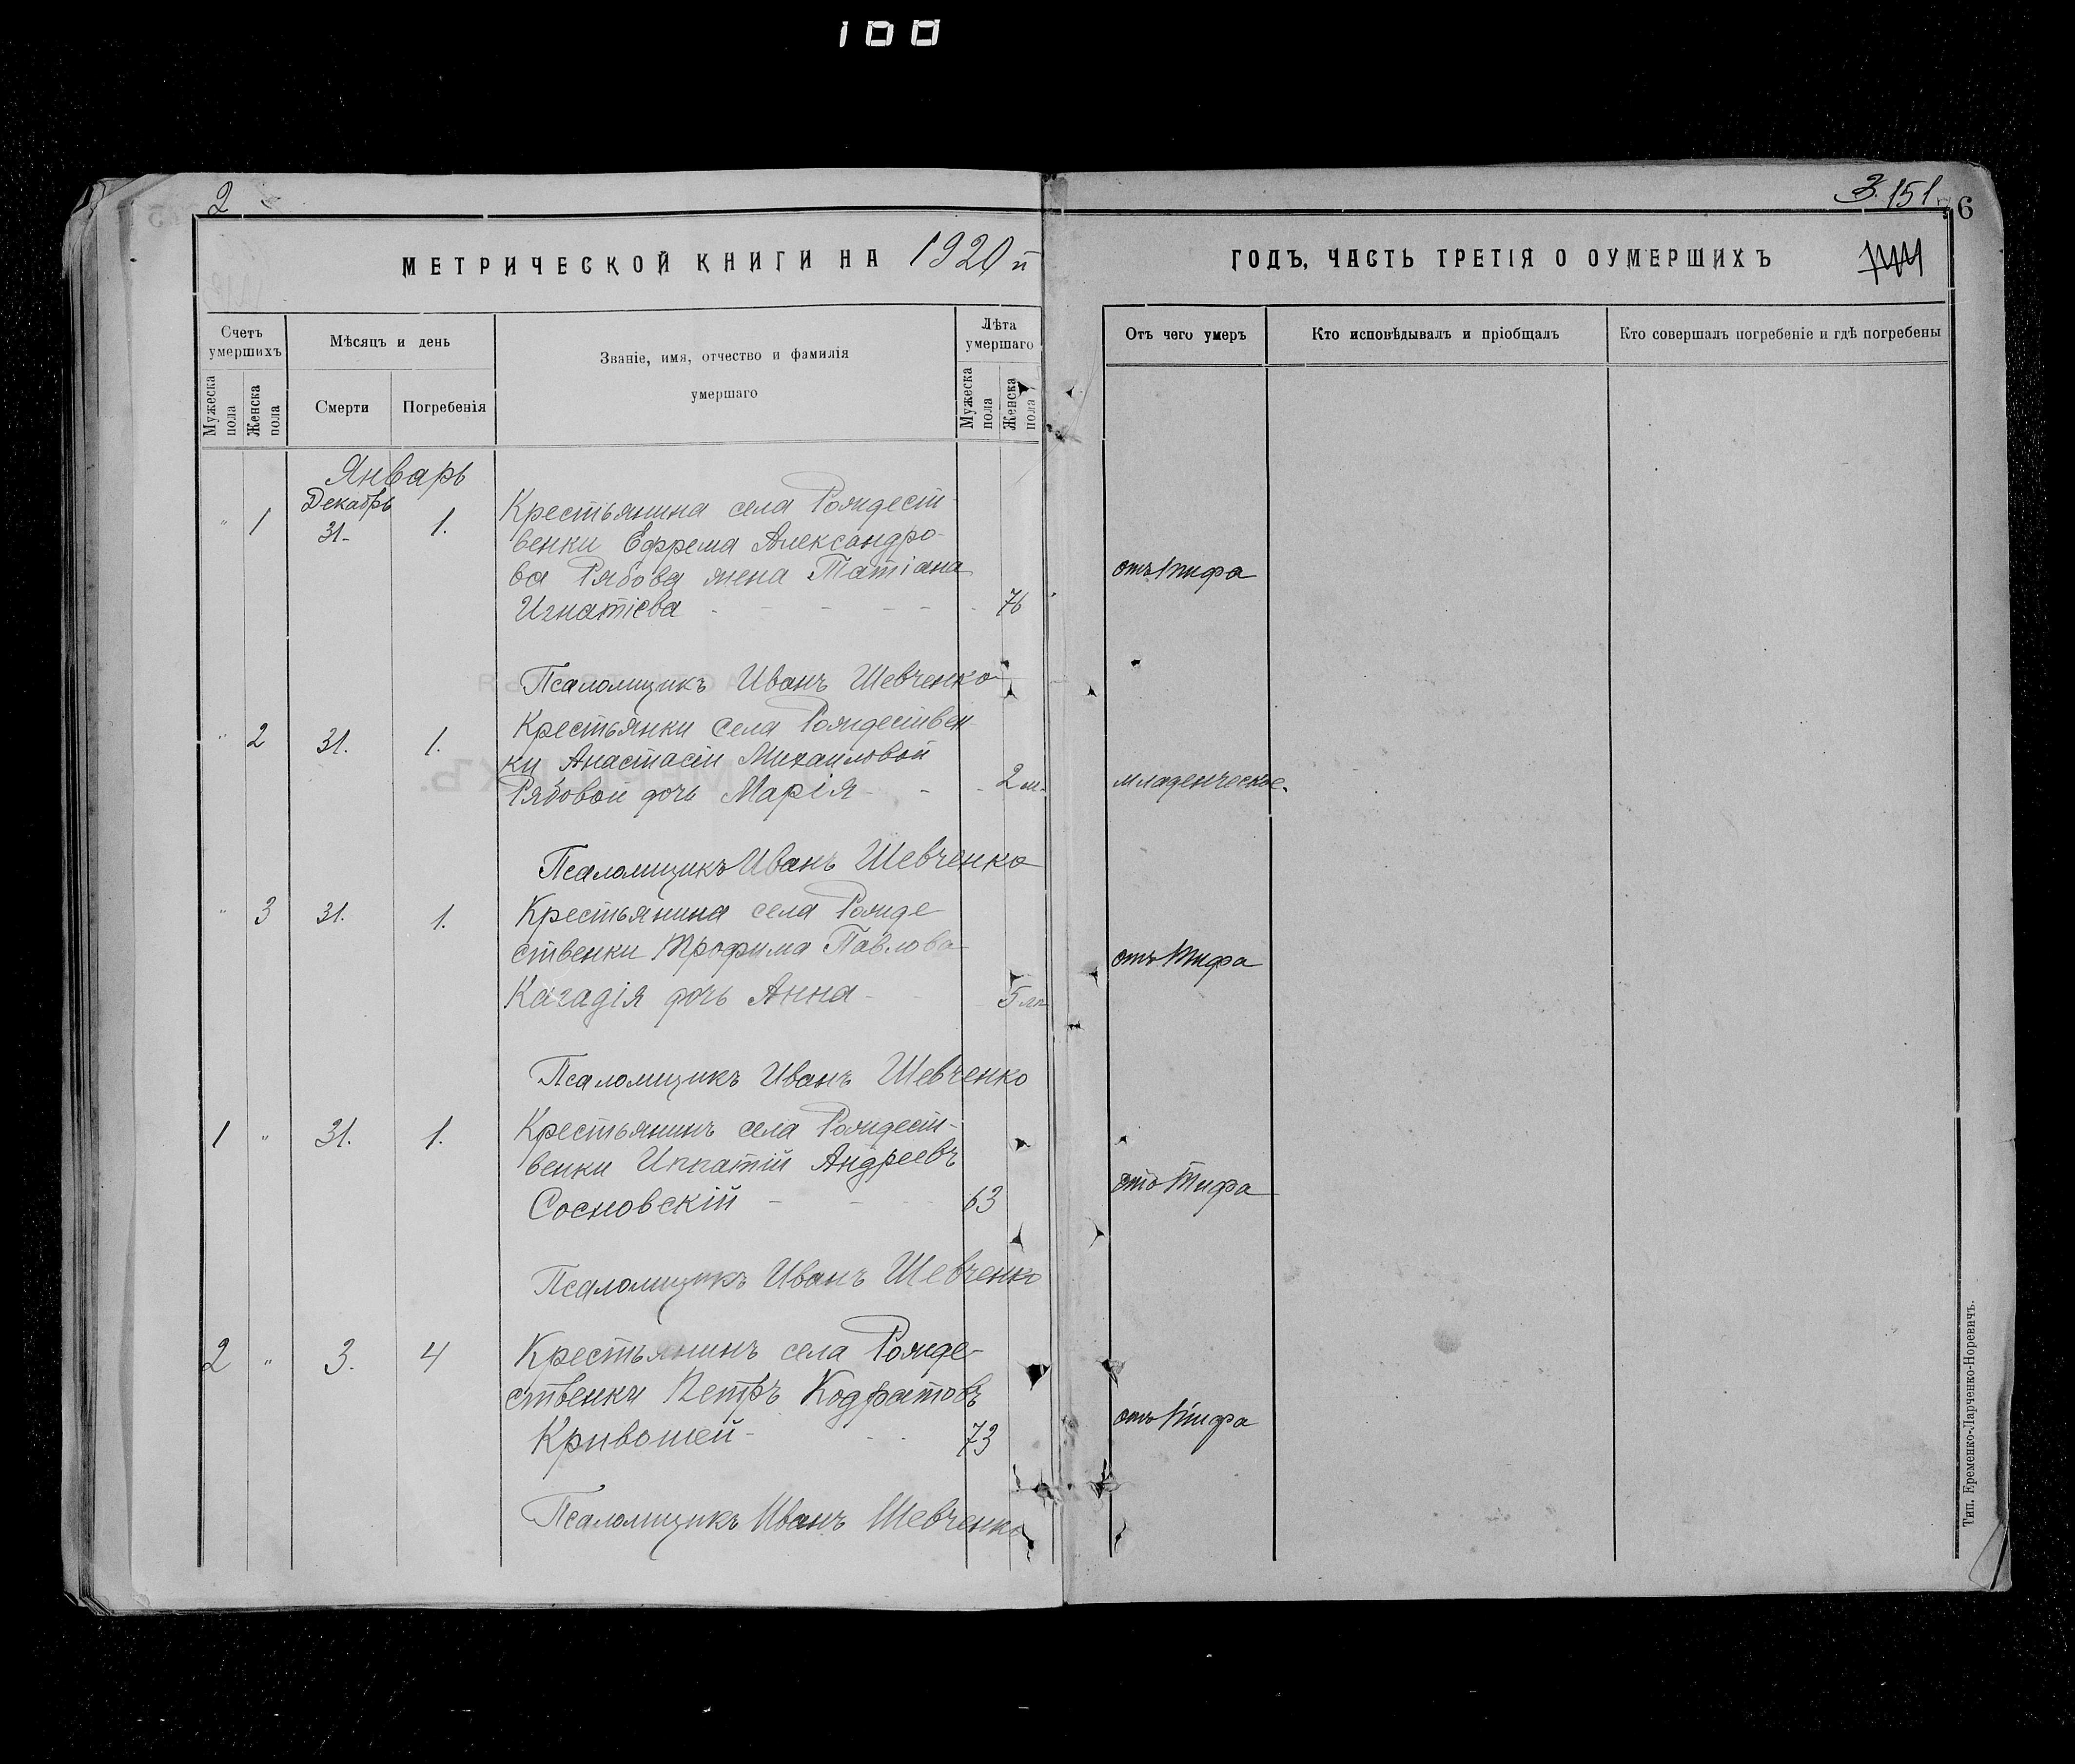 100
2
3. 151.
6
МЕТРИЧЕСКОЙ КНИГИ НА 1920 й
ГОДЪ, ЧАСТЬ ТРЕТІЯ О ОУМЕРШИХЪ
Счетъ умершихъ
Мужеска пола
Женска пола
Мѣсяцъ и день
Смерти
Погребенія
Званіе, имя, отчество и фамилія
умершаго
Лѣта умершаго
Мужеска пола
Женска пола
Отъ чего умеръ
Кто исповѣдывалъ и пріобщалъ
Кто совершалъ погребеніе и гдѣ погребены
Январь
Декабрь
" 1 31- 1. Крестьянина села Рождест-
венки Ефрема Александро-
ва Рябова жена Татіана
Игнатіева - - - - - - 76
отъ тифа
Псаломщикъ Иванъ Шевченко
" 2 31. 1. Крестьянки села Рождествен-
ки Анастасіи Михаиловой
Рябовой дочь Марія - - - 2 м.
младенческое.
Псаломщикъ Иванъ Шевченко
" 3 31. 1. Крестьянина села Рожде-
ственки Трофима Павлова
дочь Анна - - 5
отъ тифа
Псаломщикъ Иванъ Шевченко
1 " 31. 1. Крестьянинъ села Рождест-
венки Ипатій Андреевъ
Сосновскій - - - 63
отъ тифа
Псаломщикъ Иванъ Шевченко
2 " 3. 4 Крестьянинъ села Рожде-
ственки Петръ Кодратовъ
Кривошей - - - 73
отъ тифа
Псаломщикъ Иванъ Шевченко
Тип. Еременко-Ларченко-Норевичъ.